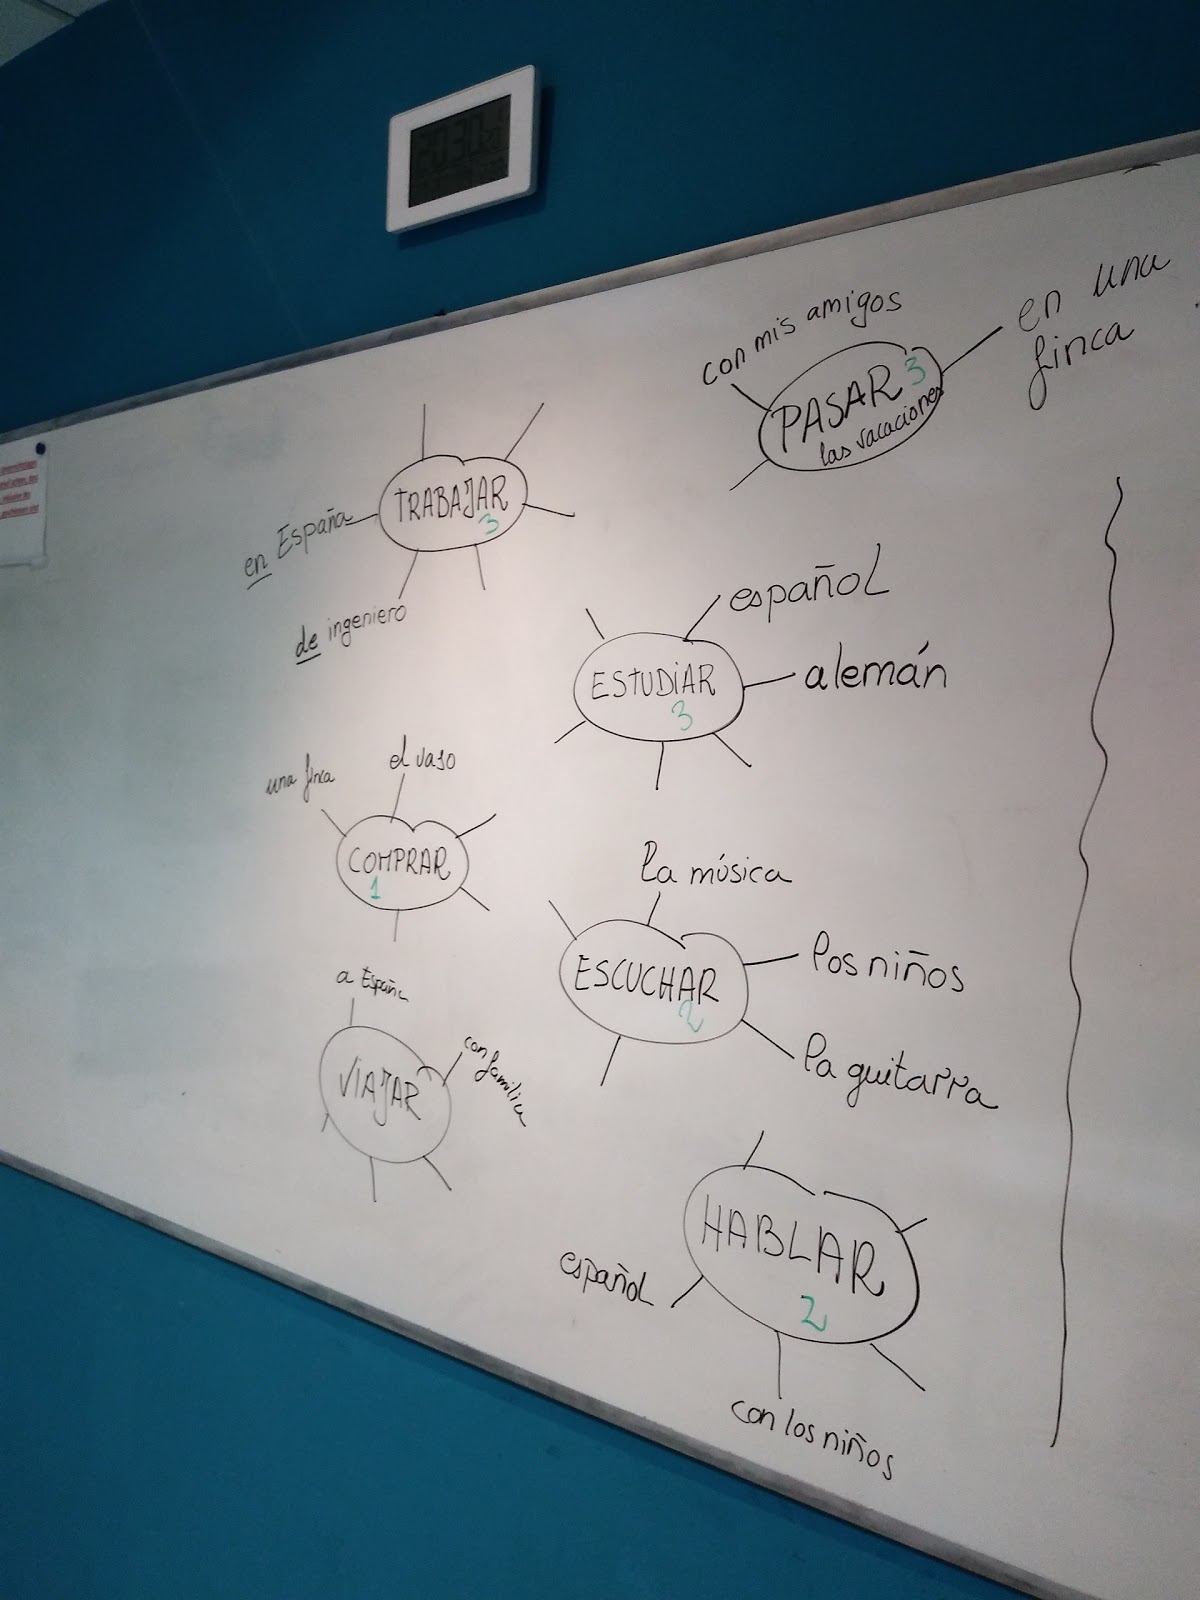 20:30
con mis amigos
en una
finca
PASAR 3
las vacaciones
TRABAJAR
3
en España
de ingeniero
español
alemán
ESTUDIAR
3
una finca
el vaso
COMPRAR
1
la música
los niños
la guitarra
ESCUCHAR
2
a España
con familia
VIAJAR
HABLAR
2
español
con los niños